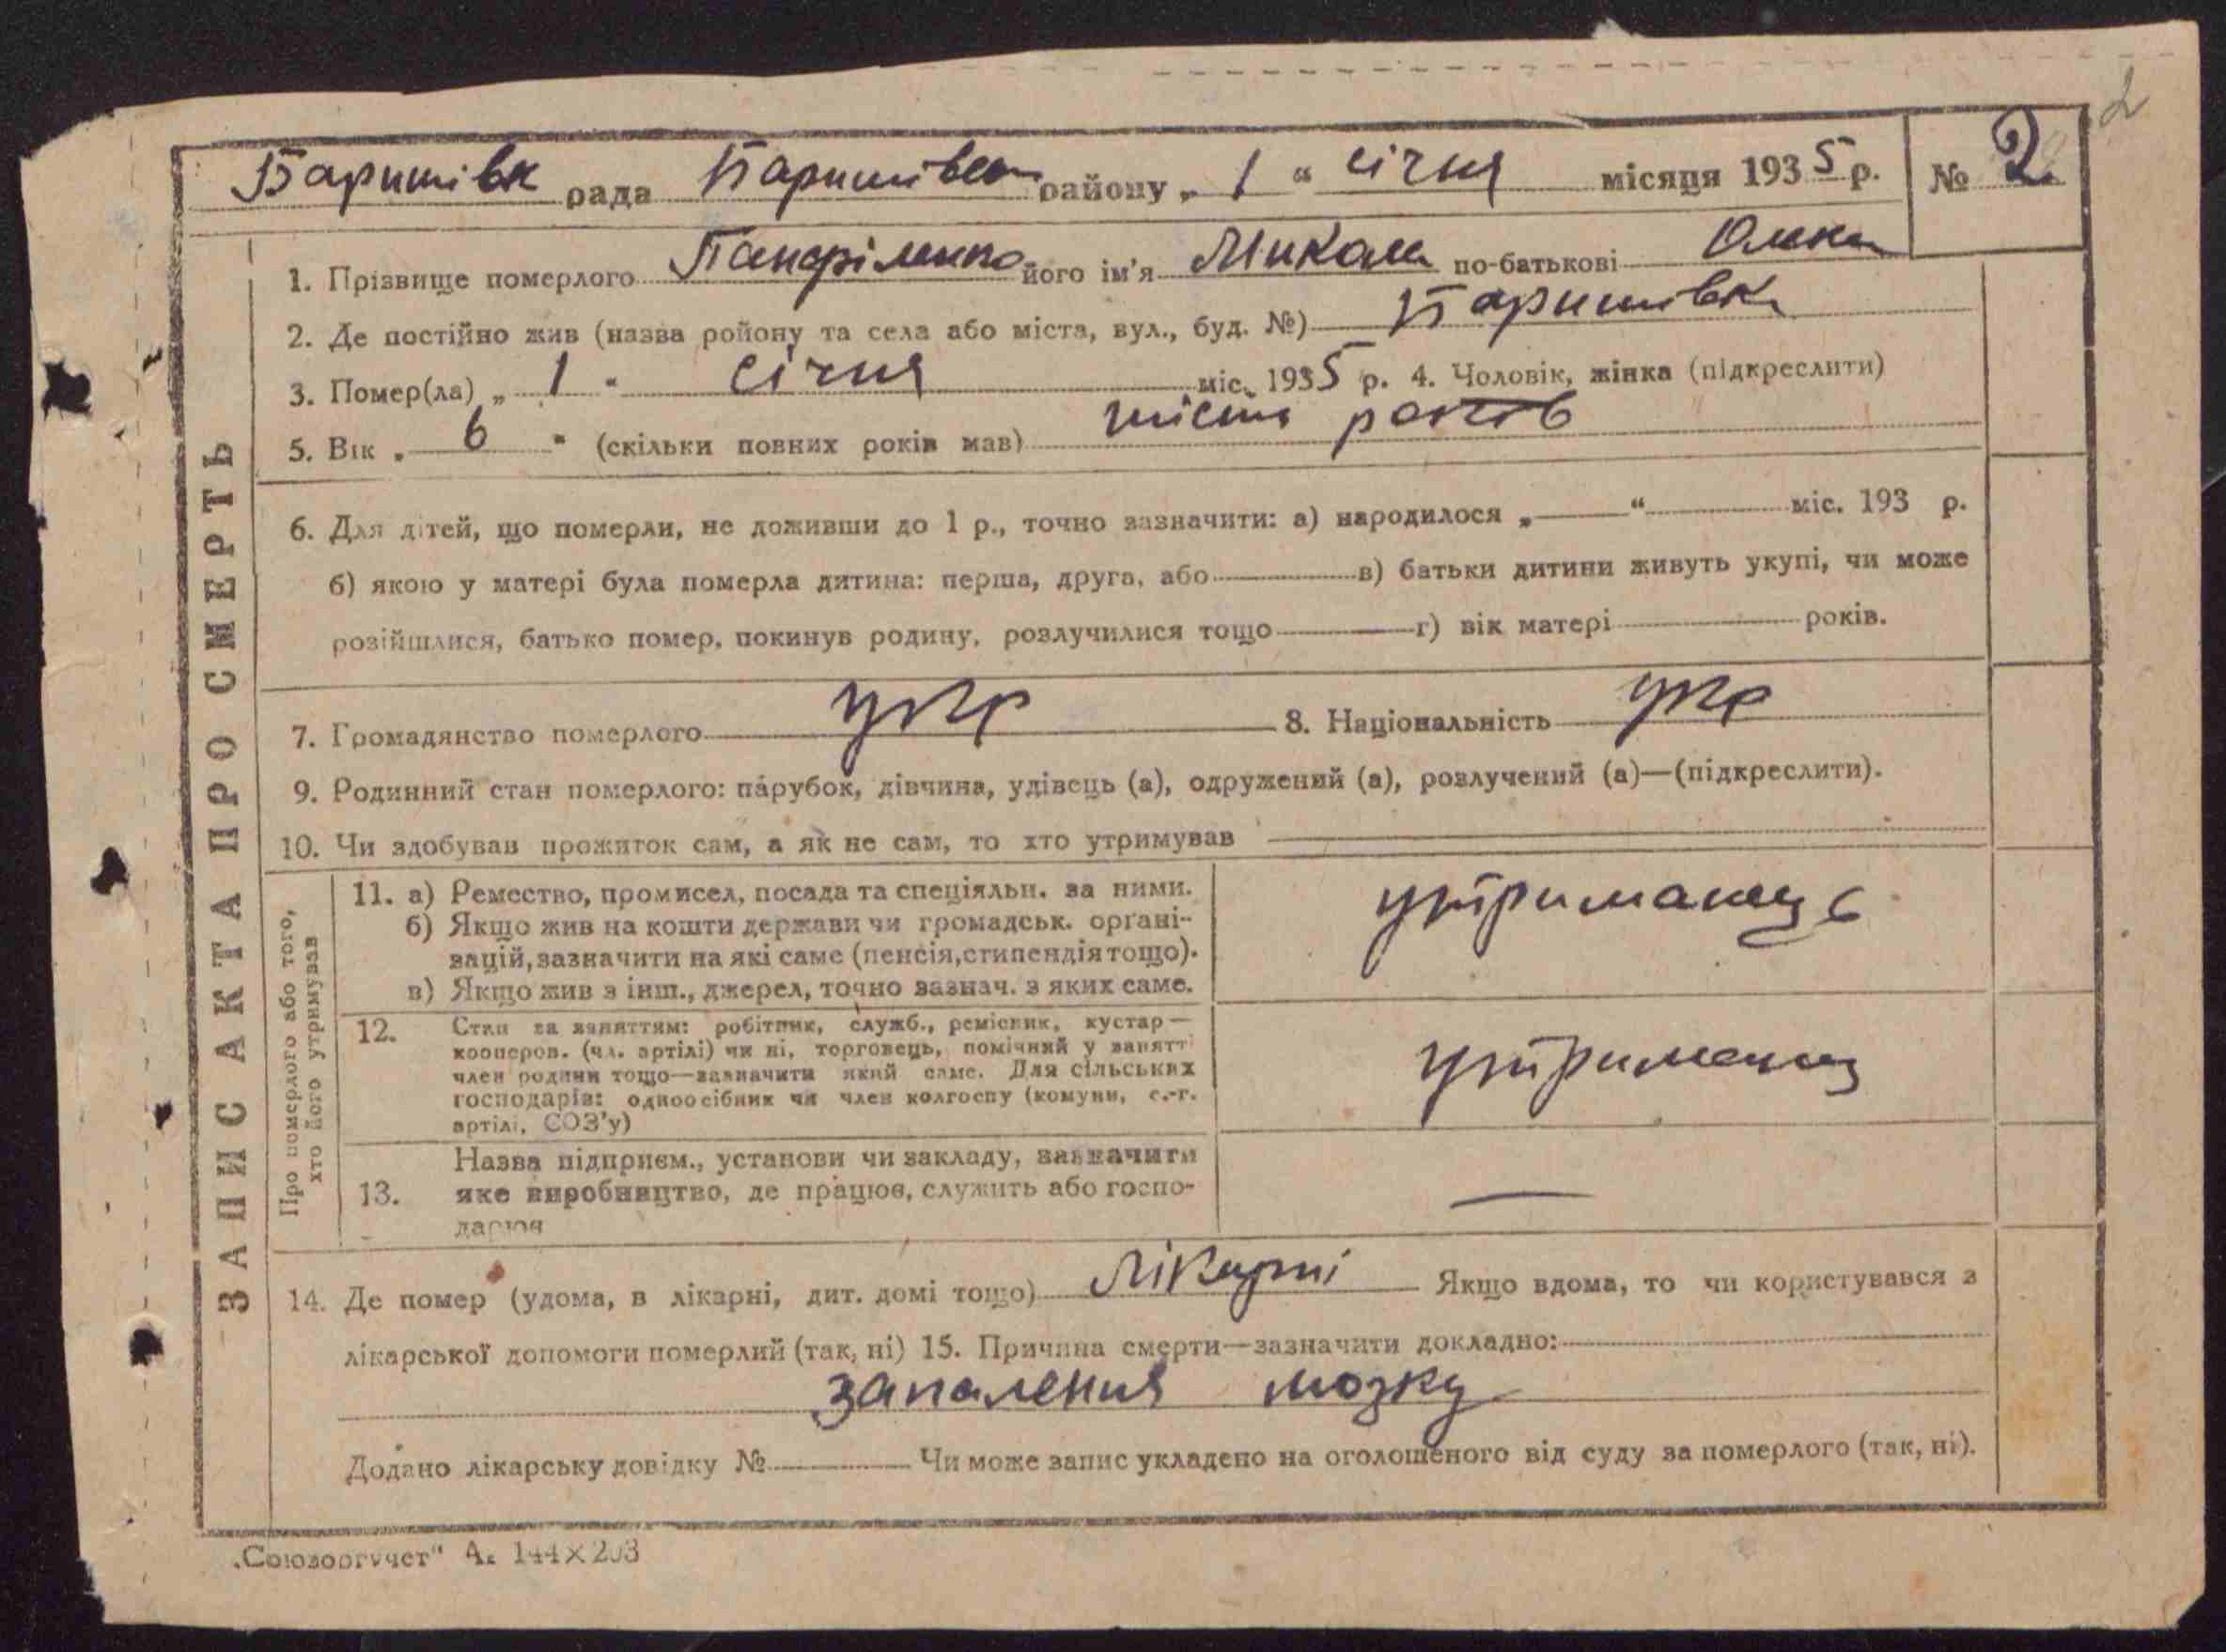 2
Баришівк рада Баришівськ району „ 1 “ січня місяця 1935 р. № 2
1. Прізвище померлого його ім'я Микола по-батькові
2. Де постійно жив (назва ройону та села або міста, вул., буд. №) Баришівка
3. Помер(ла) „ 1 “ січня міс. 1935 р. 4. Чоловік, жінка (підкреслити)
5. Вік „ 6 “ (скільки повних років мав) шість років
6. Для дітей, що померли, не доживши до 1 р., точно зазначити: а) народилося „ “ міс. 193 р.
б) якою у матері була померла дитина: перша, друга, або в) батьки дитини живуть укупі, чи може
розійшлися, батько помер, покинув родину, розлучилися тощо г) вік матері років.
7. Громадянство померлого укр 8. Національність укр
9. Родинний стан померлого: парубок, дівчина, удівець (а), одружений (а), розлучений (а)—(підкреслити).
10. Чи здобував прожиток сам, а як не сам, то хто утримував
ЗАПИС АКТА ПРО СМЕРТЬ
Про померлого або того,
хто його утримував
11. а) Ремество, промисел, посада та спеціяльн. за ними.
б) Якщо жив на кошти держави чи громадськ. органі-
зацій, зазначити на які саме (пенсія, стипендія тощо).
в) Якщо жив з інш., джерел, точно зазнач. з яких саме.
утриманець
12. Стан за заняттям: робітник, служб., ремісник, кустар —
кооперов. (чл. артілі) чи ні, торговець, помічний у занятті
член родини тощо—зазначити який саме. Для сільських
господарів: одноосібник чи член колгоспу (комуни, с.-г.
артілі, СОЗ'у)
утриманец
13. Назва підприєм., установи чи закладу, зазначити
яке виробництво, де працює, служить або госпо-
дарює
—
14. Де помер (удома, в лікарні, дит. домі тощо) лікарні Якщо вдома, то чи користувався з
лікарської допомоги померлий (так, ні) 15. Причина смерти—зазначити докладно:
запалення мозку
Додано лікарську довідку № Чи може запис укладено на оголошеного від суду за померлого (так, ні).
„Союзоргучет“ А. 144×203